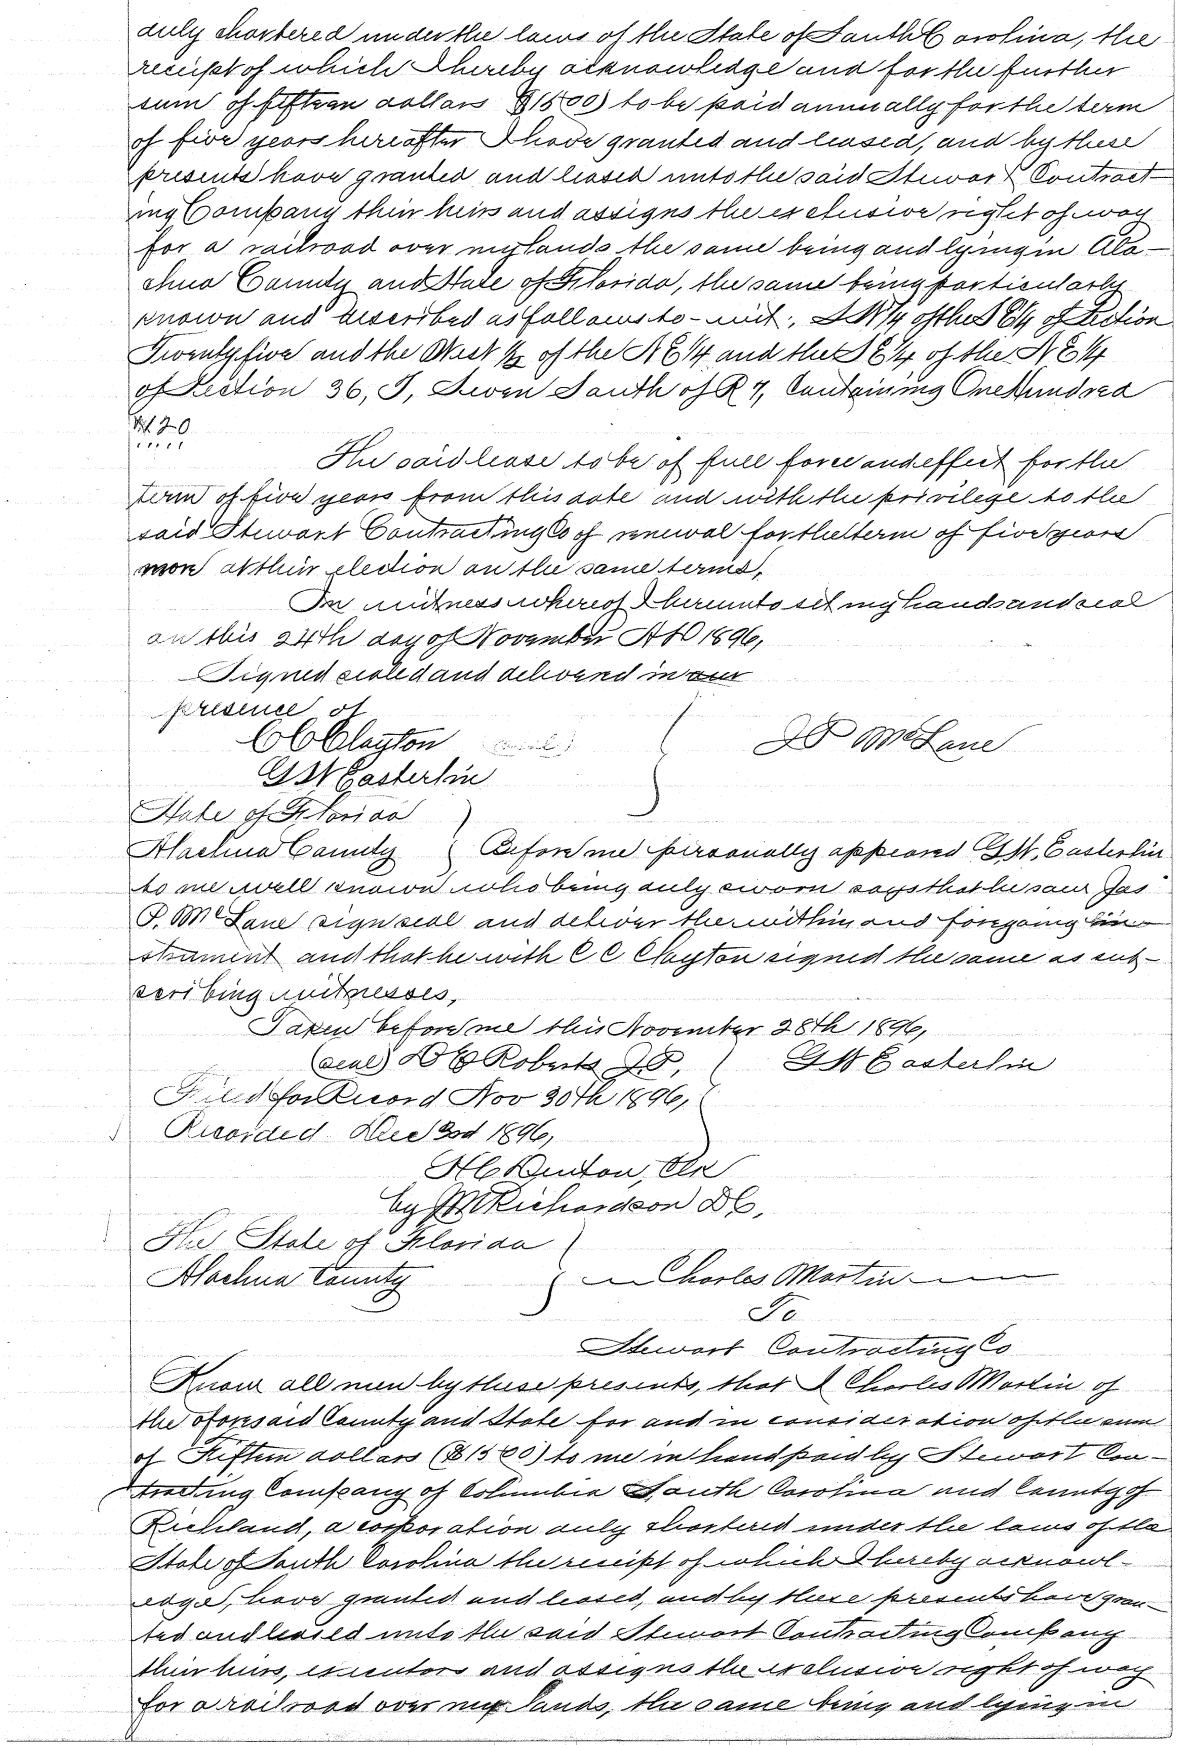 duly chartered under the laws of the State of South Carolina, the
receipt of which I hereby acknowledge and for the further
sum of fifteen dollars ($1500) to be paid annually for the term
of five years hereafter I have granted and leased, and by these
presents have granted and leased unto the said Stewart Contract-
ing Company their heirs and assigns the exclusive right of way
for a railroad over my lands the same being and lying in Ala-
chua County and State of Florida, the same being particularly
known and described as follows to-wit:, S W 1/4 of the S E 1/4 of Section
Twenty five and the West 1/2 of the N E 1/4 and the S E 1/4 of the N E 1/4
of Section 36, T, Seven South of R 7, Containing One Hundred
20
The said lease to be of full force and effect for the
term of five years from this date and with the privilege to the
said Stewart Contracting Co of renewal for the term of five years
more at their election on the same terms,
In witness whereof I hereunto set my hands and seal
on this 24th day of November A D 1896,
Signed sealed and delivered in our
presence of
C C Clayton J P McLane
G W Easterlin
State of Florida
Alachua County Before me personally appeared G W, Easterlin
to me well known who being duly sworn says that he saw Jas
P. McLane sign seal and deliver the within and foregoing in-
strument and that he with C C Clayton signed the same as sub-
scribing witnesses,
Taken before me this November 28th 1896,
(seal) Roberts J.P, G W Easterlin
Filed for Record Nov 30th 1896,
Recorded Dec 3rd 1896,
H C Denton, Clk
by J M Richardson D C,
The State of Florida
Alachua County Charles Martin
To
Stewart Contracting Co
Know all men by these presents, that I Charles Martin of
the aforesaid County and State for and in consideration of the sum
of Fifteen dollars ($1500) to me in hand paid by Stewart Con-
tracting Company of Columbia South Carolina and County of
Richland, a corporation duly chartered under the laws of the
State of South Carolina the receipt of which I hereby acknowl-
edge, have granted and leased, and by these presents have gran-
ted and leased unto the said Stewart Contracting Company
their heirs, executors and assigns the exclusive right of way
for a railroad over my lands, the same being and lying in